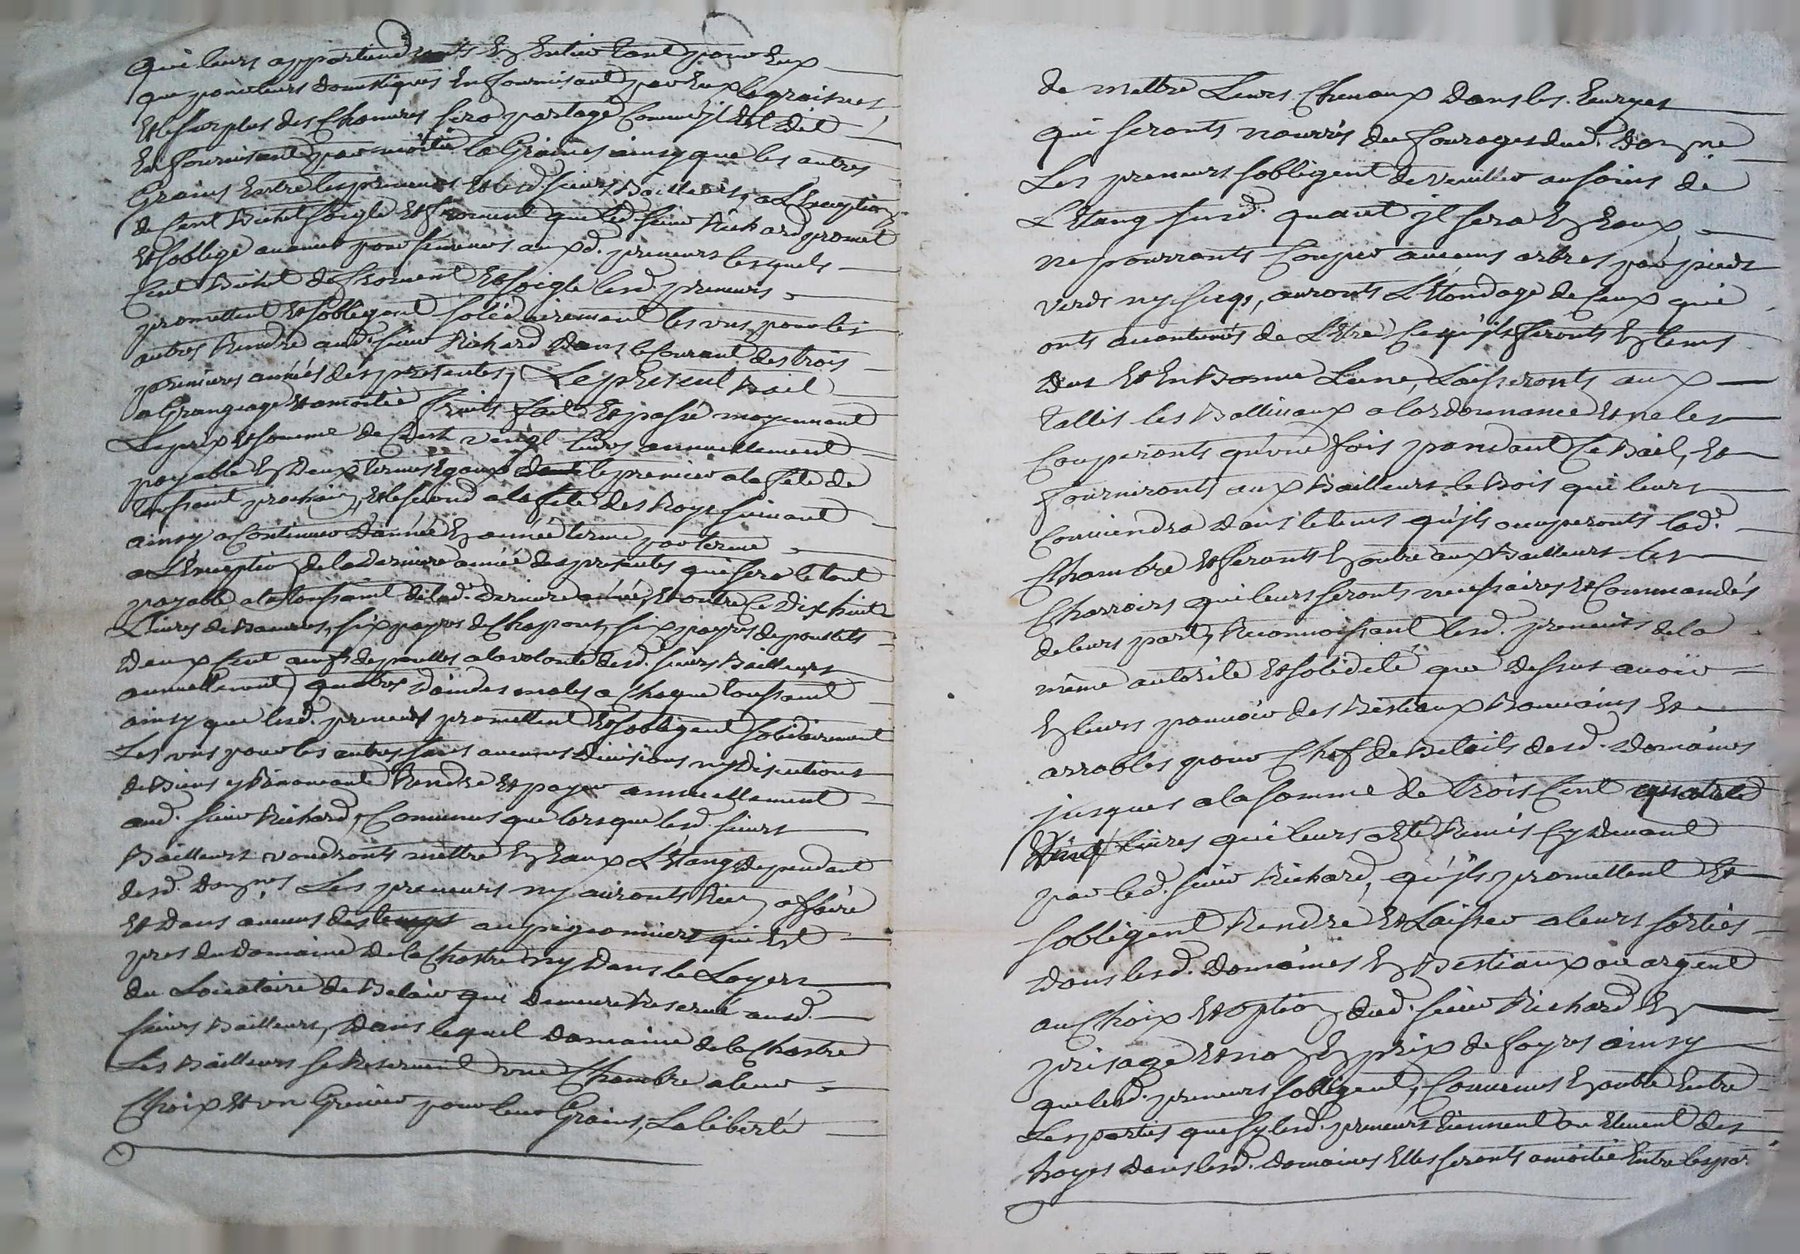 qui leurs appartiendronts En Entier tant pour Eux
que pour leurs domestiques En fournisant par Eux la graisnes
Et le surplus des Chanvres sera partagé Comme il Est dit
En fournisant par moitié la Graines ainsy que les autres
Grains Entre les preneurs Et lesd. sieurs Bailleurs, a L'Exception
de Cent Bichet soigle Et froment que led. sieur Richard promet
Et soblige avancer pour semences auxd. preneurs lesquels
Cent Bichet de froment Et soigle lesd. preneurs
promettent Et sobligent solidairement les uns pour les
autres Rendre aud. sieur Richard dans le Courant des trois
premieres années des presentes, Le present Bail
a Grangeage Et a moitié fruits fait Et passé moyennant
Le prix Et somme de Cent vingt livres annuellement
payable En deux termes Egaux le premier a la fete de
toussaint prochain, Et le second a la fete des Roys suivant
ainsy a Continuer d'année En année terme par terme
a L'Exception de la derniere année des presentes que sera le tout
payable a la toussaint de lad. derniere année, Et outre Ce dix huit
Livres de Beurres, six payres de Chapons, six payres de poulets
deux Cent œufs de poulles a la volonté desd. sieurs Bailleurs
annuellement, quatres d'aindes males a Chaque toussaint
ainsy que lesd. preneurs promettent Et sobligent solidairement
Les uns pour les autres sans aucunes divisions ny discutions
de Biens y Renoncant Rendre Et payer annuellement
aud. sieur Richard, Convenus que lorsque lesd. sieurs
Bailleurs voudronts mettre En Eaux L'Etang dependant
desd. domnes Les preneurs ny auronts Rien affaire
Et dans aucuns des temps au pigeonniers qui Est
pres du domaine de la Chastre ny dans le Loyers
du Locataire de Belair qui demeure Reservé ausd.
sieurs Bailleurs, dans lequel domaine de la Chastre
Les Bailleurs se Reservent une Chambre a leur
Choix Et un Grenier pour leur Grains, La liberté
de mettre Leurs Chevaux dans les Euryes
qui seronts nourris du fourages dud. domne
Les preneurs sobligent de veiller au soins de
L'Etang susd. quant il sera En Eaux
ne pourronts Couper aucuns arbres par pieds
verds ny secqs, auronts L'Elondage de Ceux qui
onts accoutumés de L'Etre Ce qu'ils feronts En tems
dus Et En Bonne Lune, Laisseronts aux
tallis les Balliveaux a lordonnance Et ne les
Couperonts qu'une fois pendant Ce Bail, Et
fournironts aux Bailleurs le Bois qui leurs
Conviendra dans le tems qu'ils occuperonts lad.
Chambre Et feronts En outre aux Bailleurs les
Charroirs qui leurs seronts necessaires Et Commandés
de leurs part, Reconnoissant lesd. preneurs de la
même autorité Et solidité que dessus avoir
En leurs pouvoir des Bestiaux Bouvains Et
arrables pour Chef de Betails desd. domaines
jusques a la somme de trois Cent quatre
vingt Livres qui leurs a Eté Remis Cy devant
par led. sieur Richard, qu'ils promettent Et
sobligent Rendre Et Laisser a leurs sorties
dans lesd. domaines En Bestiaux ou argent
au Choix Et option dud. sieur Richard En
prisage Et non En prix de foyres ainsy
que lesd. preneurs sobligent, Convenus En outre Entre
Les parties que sy lesd. preneurs tiennent ou Elevent des
hoyes dans lesd. domaines Elles seronts a moitié Entre les par